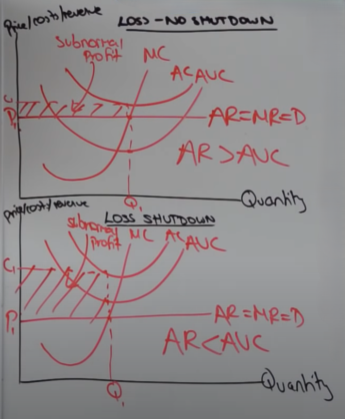 Price/costs/revenue
LOSS - NO SHUTDOWN
subnormal profit
MC
AC AVC
C₁
P₁
AR=MR=D
AR > AVC
Q₁
Quantity
price/costs/revenue
LOSS SHUTDOWN
subnormal profit
MC
AC AVC
C₁
P₁
AR=MR=D
AR < AVC
Q₁
Quantity